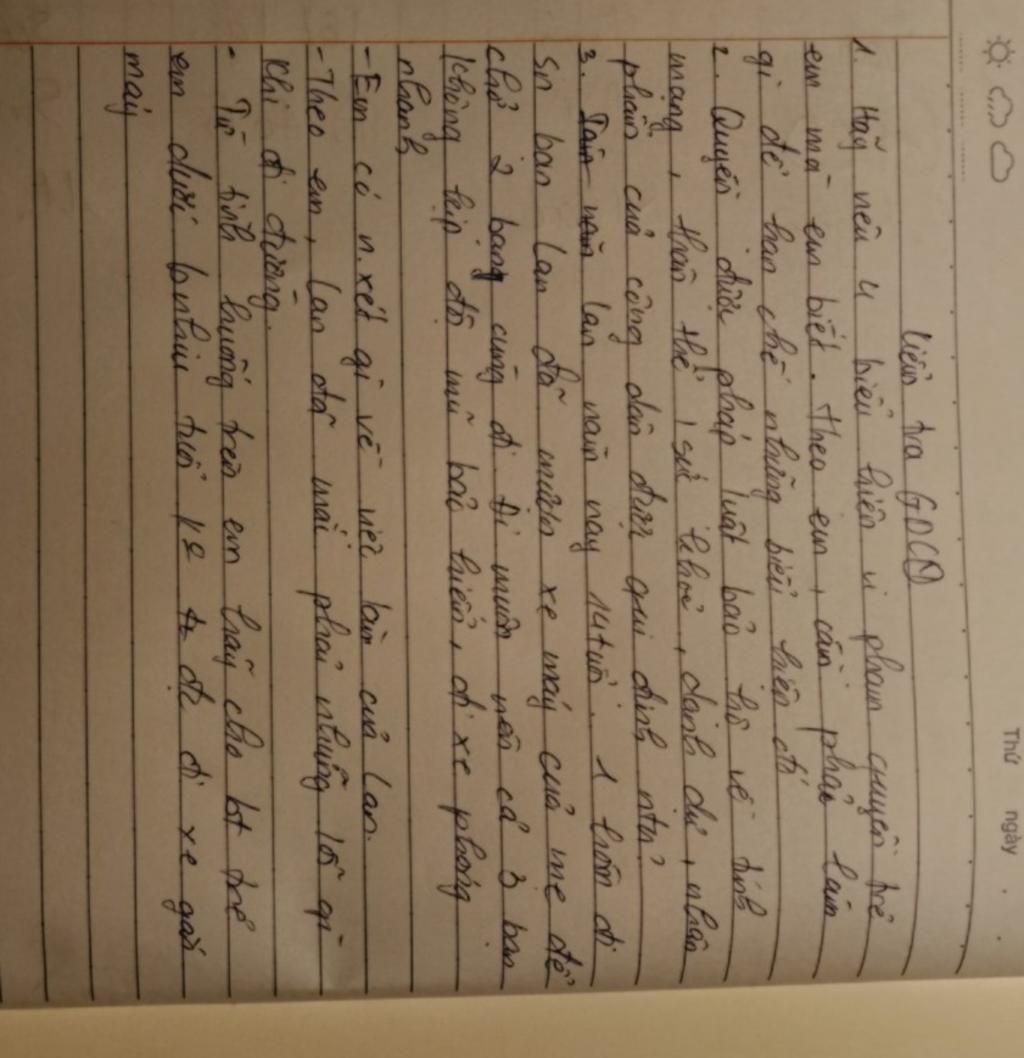 Thứ ngày
kiểm tra GDCD
1. Hãy nêu 4 biểu hiện vi phạm quyền trẻ
em mà em biết. Theo em, cần phải làm
gì để hạn chế những biểu hiện đó
2. Quyền được pháp luật bảo hộ về tính
mạng, thân thể, sức khoẻ, danh dự, nhân
phẩm của công dân được qui định ntn?
3. Lan năm nay 14 tuổi. 1 hôm đi
Sn bạn Lan đã mượn xe máy của mẹ để
chở 2 bạn cùng đi. Đi muộn nên cả 3 bạn
không kịp đội mũ bảo hiểm, đi xe phóng
nhanh
- Em có n.xét gì về việc làm của Lan.
- Theo em, Lan đã mắc phải những lỗi gì
khi đi đường.
- Từ tình huống trên em hãy cho bt trẻ
em dưới bnhiu tuổi đc đi xe gắn
máy